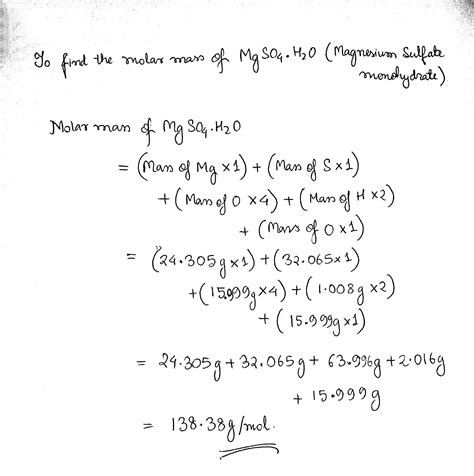 To find the molar mass of MgSO4.H2O (Magnesium Sulfate
monohydrate)
Molar mass of MgSO4.H2O
= (Mass of Mg x1) + (Mass of S x1)
+ (Mass of O x4) + (Mass of H x2)
+ (Mass of O x1)
= (24.305g x1) + (32.065x1)
+ (15.999g x4) + (1.008g x2)
+ (15.999g x1)
= 24.305g + 32.065g + 63.996g + 2.016g
+ 15.999g
= 138.38g/mol.